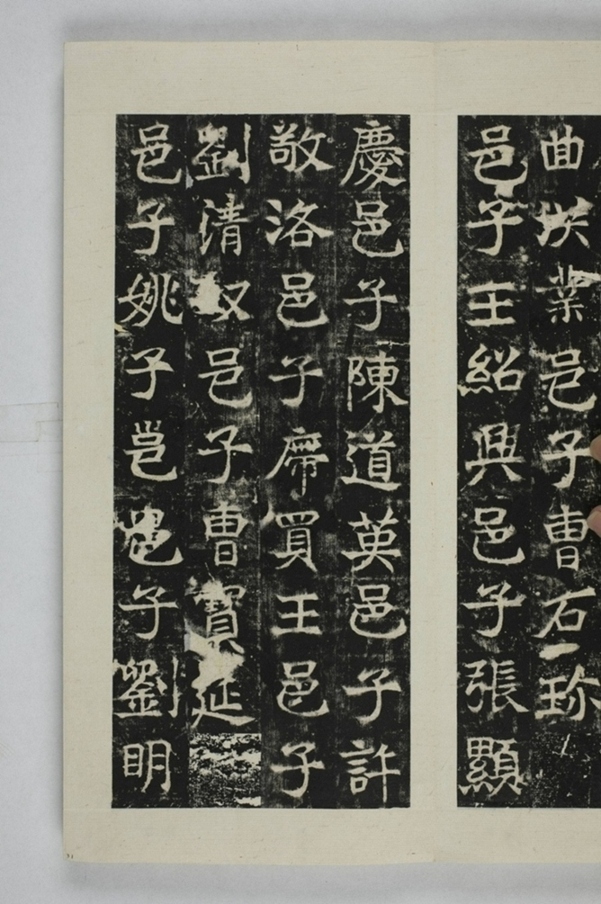 曲㙇業邑子曹石珎
邑子王紹興邑子張顯
慶邑子陳道英邑子許
敬洛邑子席買王邑子
劉清奴邑子曹寶延
邑子姚子邕邑子劉明